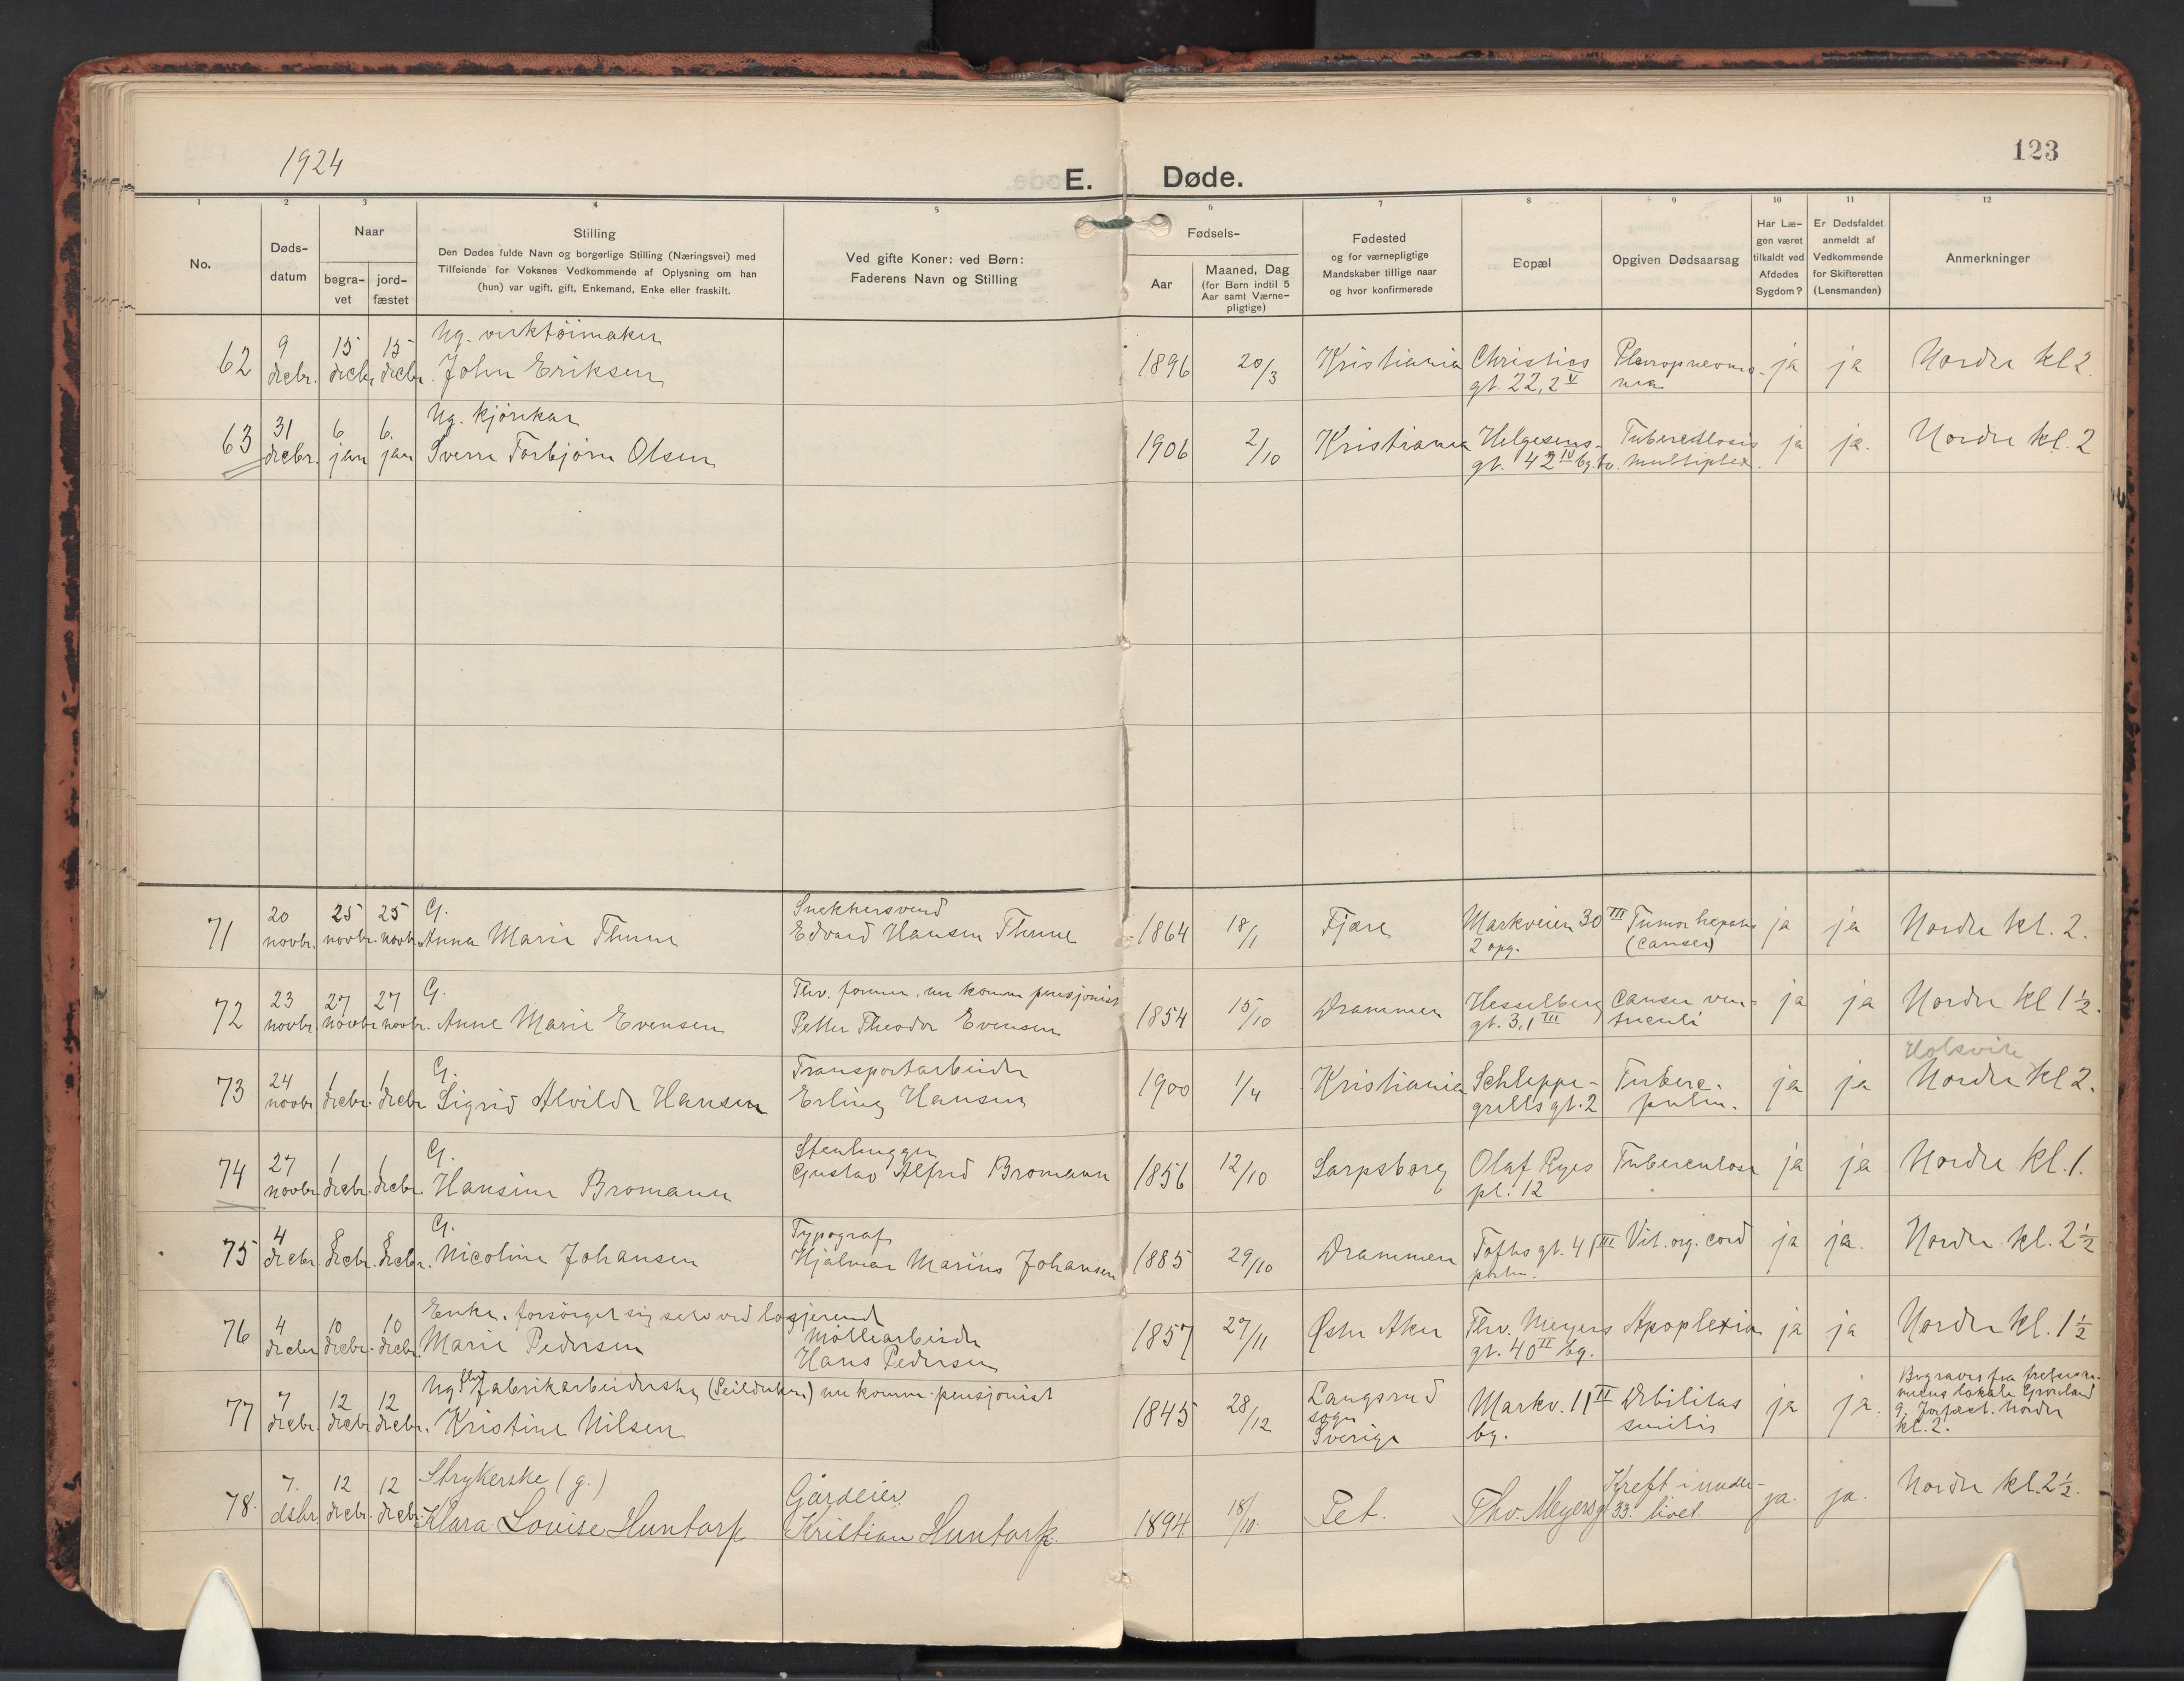 1924
E. Døde.
123
1 2 3 4 5 6 7 8 9 10 11 12
No.
Døds-
datum
Naar
begra-
vet
jord-
fæstet
Stilling
Den Dødes fulde Navn og borgerlige Stilling (Næringsvei) med
Tilføiende for Voksnes Vedkommende af Oplysning om han
(hun) var ugift, gift, Enkemand, Enke eller fraskilt.
Ved gifte Koner: ved Børn:
Faderens Navn og Stilling
Fødsels-
Aar
Maaned, Dag
(for Børn indtil 5
Aar samt Værne-
pligtige)
Fødested
og for værnepligtige
Mandskaber tillige naar
og hvor konfirmerede
Bopæl
Opgiven Dødsaarsag
Har Læ-
gen været
tilkaldt ved
Afdødes
Sygdom?
Er Dødsfaldet
anmeldt af
Vedkommende
for Skifteretten
(Lensmanden)
Anmerkninger
62 9 decbr. 15 decbr. 15 decbr.
Ug. verktöimaker
John Eriksen
1896 20/3 Kristiania
Christies
gt. 22, 2 V
Plevropneomo-
nia
ja ja Nordre kl 2.
63 31 decbr. 6 jan 6. jan
Ug. kjörekar
Sverre Torbjörn Olsen
1906 2/10 Kristiania
Helgesens-
gt. 42 IV bg.
Tuberculosis
multiplex.
ja ja. Nordre kl. 2
71 20 novbr. 25 novbr. 25 novbr.
G.
Anna Marie Thune
Snekkersvend
Edvard Hansen Thune
1864 18/1 Fjære
Markveien 30 III
2 opg.
Tumor hepatis
(cancer)
ja ja Nordre kl. 2.
72 23 novbr. 27 novbr 27 novbr.
G.
Anne Marie Evensen
Thv. former, nu komm pensjonist
Petter Theodor Evensen
1854 15/10 Drammen
Hesselberg
gt. 3,1 III
Cancer ven-
triculi
ja ja Nordre kl 1½.
73 24 novbr 1 decbr. 1 decbr
G.
Sigrid Alvilde Hansen
Transportarbeider
Erling Hansen
1900 1/4 Kristiania
Schleppe-
grellsgt. 2
Taberc.
pulm.
ja ja
Nordre kl 2.
74 27 novbr 1 decbr. 1 decbr.
G.
Hansine Bromann
Stenhugger
Gustav Alfred Bromann
1856 12/10 Sarpsborg
Olaf Ryes
pl. 12
Tuberculose
ja ja Nordre kl. 1.
75 4 decbr. 8 decbr. 8 decbr.
G.
Nicoline Johansen
Typograf
Hjalmar Marius Johansen
1885 29/10 Drammen
Tofts gt. 41 III
Vit. org. cord
ja ja. Nordre kl. 2½
76 4 decbr 10 decbr. 10 decbr.
Enke, forsörget sig selv ved losjerende
Marie Pedersen
Möllearbeider
Hans Pedersen
1857 27/11 Østre Aker
Thv. Meyers
gt. 40 II bg.
Apoplexia
ja ja Nordre kl. 1½
77 7 decbr. 12 decbr 12 decbr.
Ug. fhv fabrikarbeiderske (Seilduken) nu komm. pensjonist
Kristine Nilsen
1845 28/12
Langsrud
sogn
Sverige
Markv. 11 II
bg.
Debilitas
senilis
ja ja.
Begraves fra frelsesar-
meens lokale Grönland
9. Jordfæst. Nordre
kl. 2.
78. 7. dsbr. 12 decbr. 12 decbr.
Strykerske (g.)
Klara Lovise Huntorp
Gårdeier
Kristian Huntorp.
1894 18/10. Fet.
Thv. Meyersgt 33.
Kreft i under-
livet
ja. ja. Nordre kl. 2½.